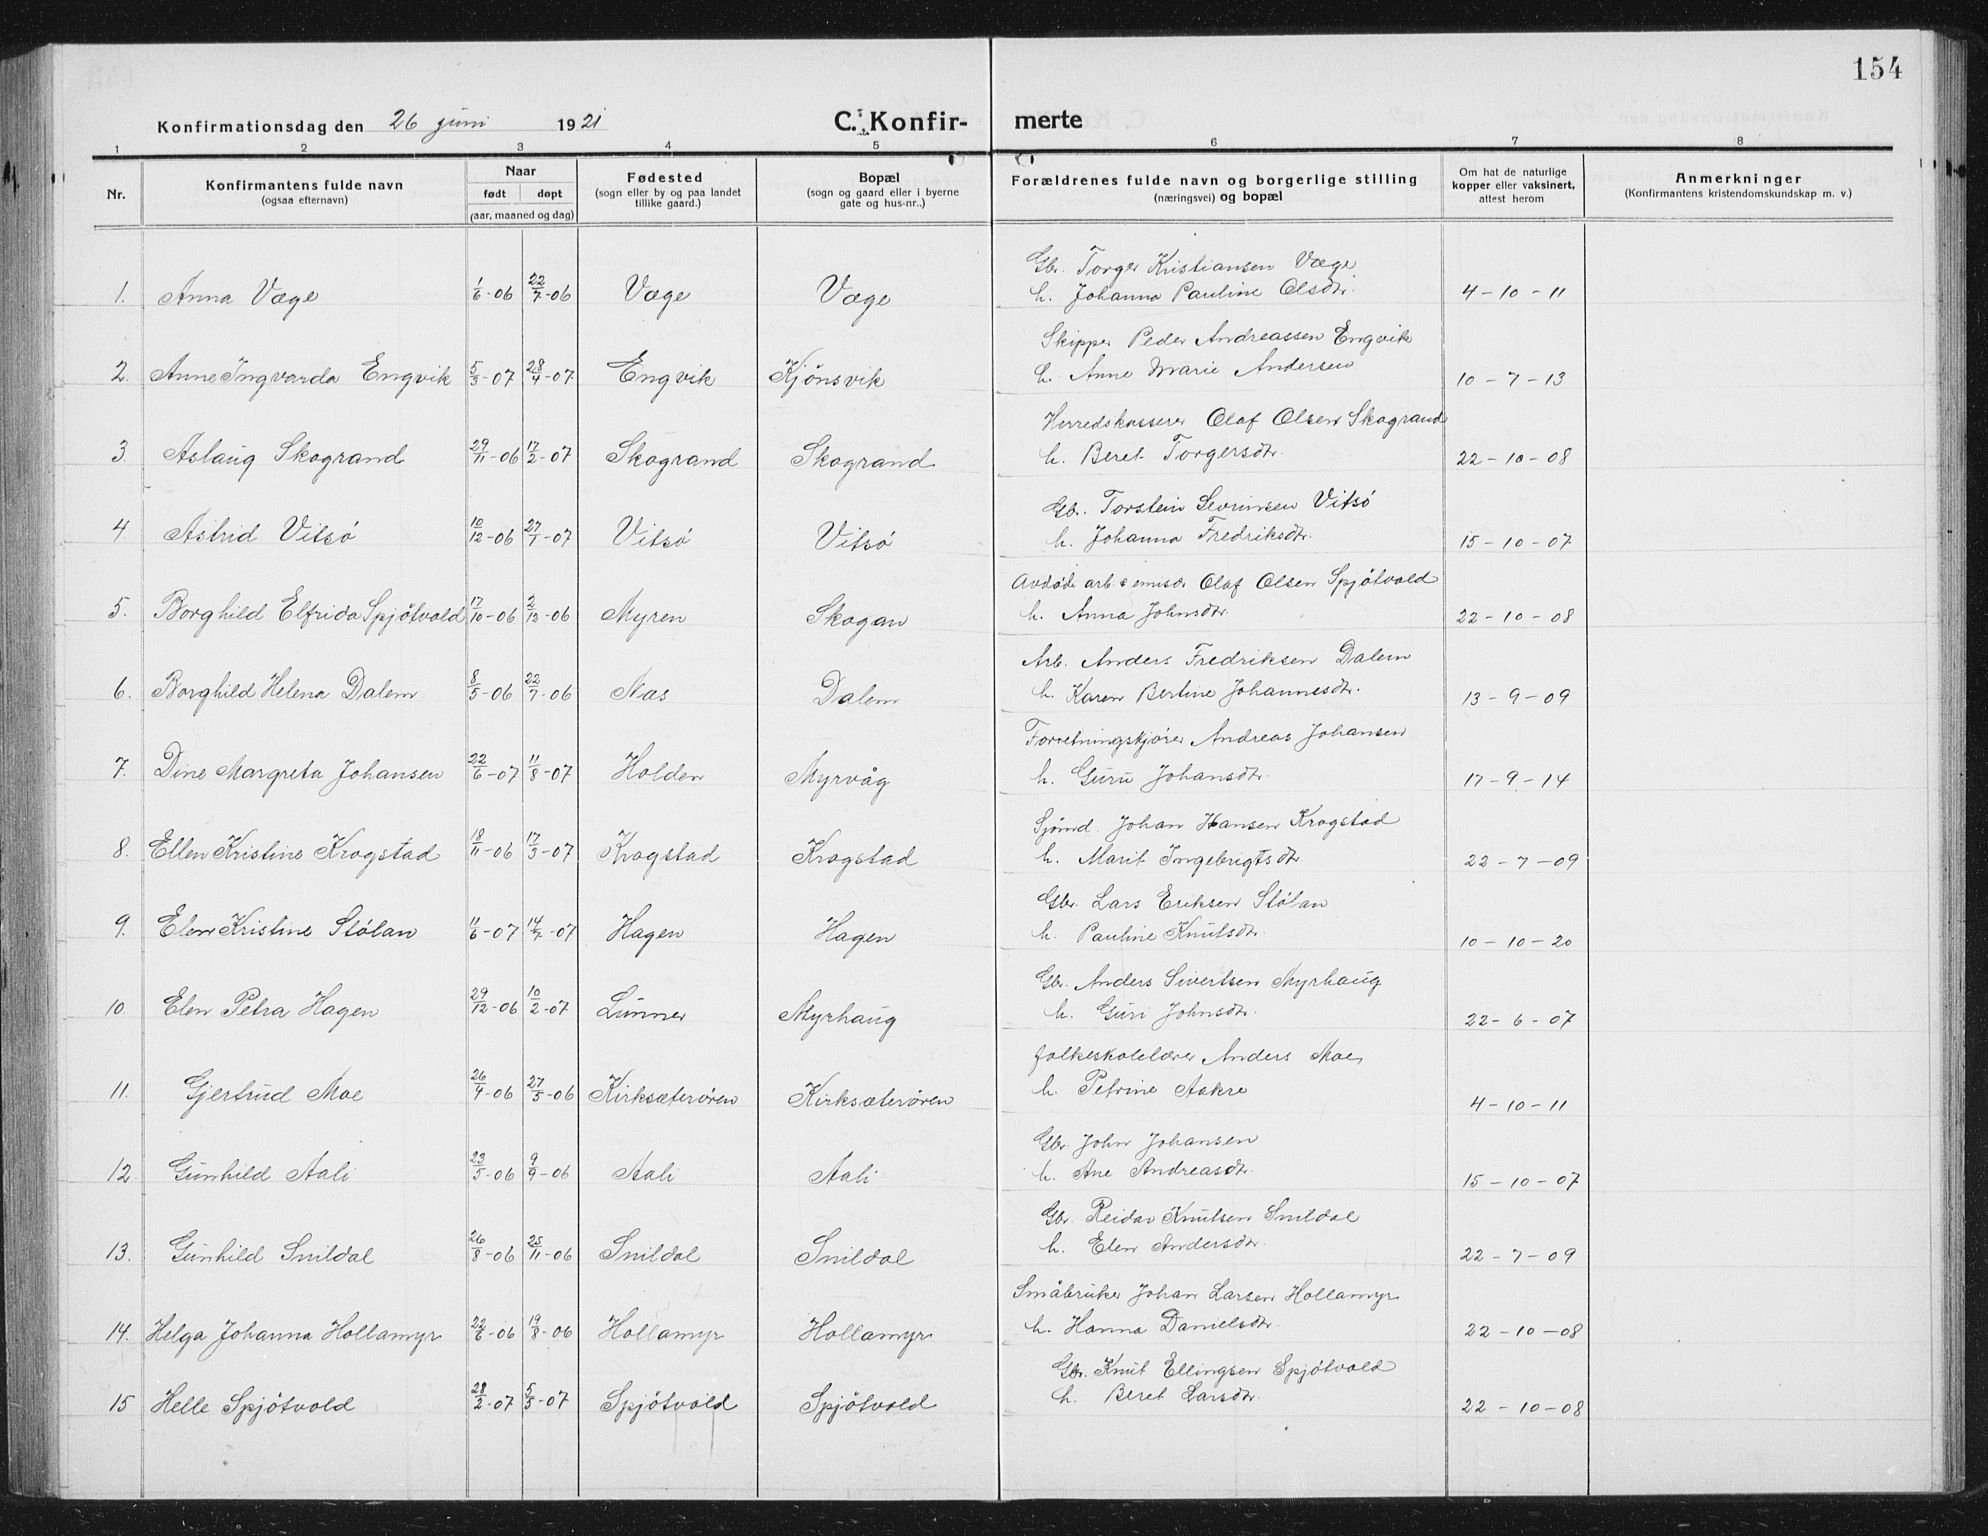 154
Konfirmationsdag den 26 juni 1921
C. Konfir- merte
1 2 3 4 5 6 7 8
Nr. Konfirmantens fulde navn (ogsaa efternavn) Naar født døpt (aar, maaned og dag) Fødested (sogn eller by og paa landet tillike gaard.) Bopæl (sogn og gaard eller i byerne gate og hus-nr..) Forældrenes fulde navn og borgerlige stilling (næringsvei) og bopæl Om hat de naturlige kopper eller vaksinert, attest herom Anmerkninger (Konfirmantens kristendomskundskap m. v.)
Gbr. Torger Kristiansen Væge
1. Anna Væge 1/6-06 22/7-06 Væge Væge h. Johanna Pauline Olsdtr. 4-10-11
Skipper Peder Andreassen Engvik
2. Anne Ingvarda Engvik 5/3-07 28/4-07 Engvik Kjönsvik h. Anne Marie Andersen 10-7-13
Herredskasserer Olaf Olsen Skogrand
3. Aslaug Skogrand 29/11-06 17/2-07 Skogrand Skogrand h. Beret Torgersdtr. 22-10-08
Gbr. Torstein Sevrinsen Vitsø
4. Astrid Vitsø 10/12-06 27/1-07 Vitsø Vitsø h. Johanna Fredriksdtr. 15-10-07
Avdøde arb. Olaf Olsen Spjøtvold
5. Borghild Elfrida Spjøtvold 17/10-06 2/12-06 Myren Skogan h. Anna Johnsdtr. 22-10-08
Arb. Anders Fredriksen Dalem
6. Borghild Helena Dalem 8/5-06 22/7-06 Næs Dalem h. Karen Bertine Johannesdtr. 13-9-09
Forretningskjører Andreas Johansen
7. Dine Margreta Johansen 22/6-07 11/8-07 Holden Myrvåg h. Guru Johansdtr. 17-9-14
Sjömd. Johan Hansen Krogstad
8. Ellen Kristine Krogstad 18/11-06 17/3-07 Krogstad Krogstad h. Marit Ingebrigtsdtr 22-7-09
Gbr. Lars Eriksen Stølan
9. Elen Kristine Stølan 11/6-07 14/7-07 Hagen Hagen h. Pauline Knutsdtr. 10-10-20
Gbr. Anders Sivertsen Myrhaug
10. Elen Petra Hagen 29/12-06 10/2-07 Lunner Myrhaug h. Guri Johnsdtr. 22-6-07
folkeskolelærer Anders Moe
11. Gjertrud Moe 26/4-06 27/5-06 Kirksæterören Kirksæterören h. Petrine Aakre 4-10-11
Gbr. John Johansen
12. Gunhild Aali 23/5-06 9/9-06 Aali Aali h. Ane Andreasdtr. 15-10-07
Gbr. Reidar Knutsen Snildal
13. Gunhild Snildal 26/8-06 25/11-06 Snildal Snildal h. Elen Andersdtr. 22-7-09
Småbruker Johan Larsen Hollamyr
14. Helga Johanna Hollamyr 22/6-06 19/8-06 Hollamyr Hollamyr h. Hanna Danielsdtr. 22-10-08
Gbr. Knut Ellingsen Spjøtvold
15 Helle Spjøtvold 28/2-07 5/5-07 Spjøtvold Spjøtvold h. Beret Larsdtr. 22-10-08